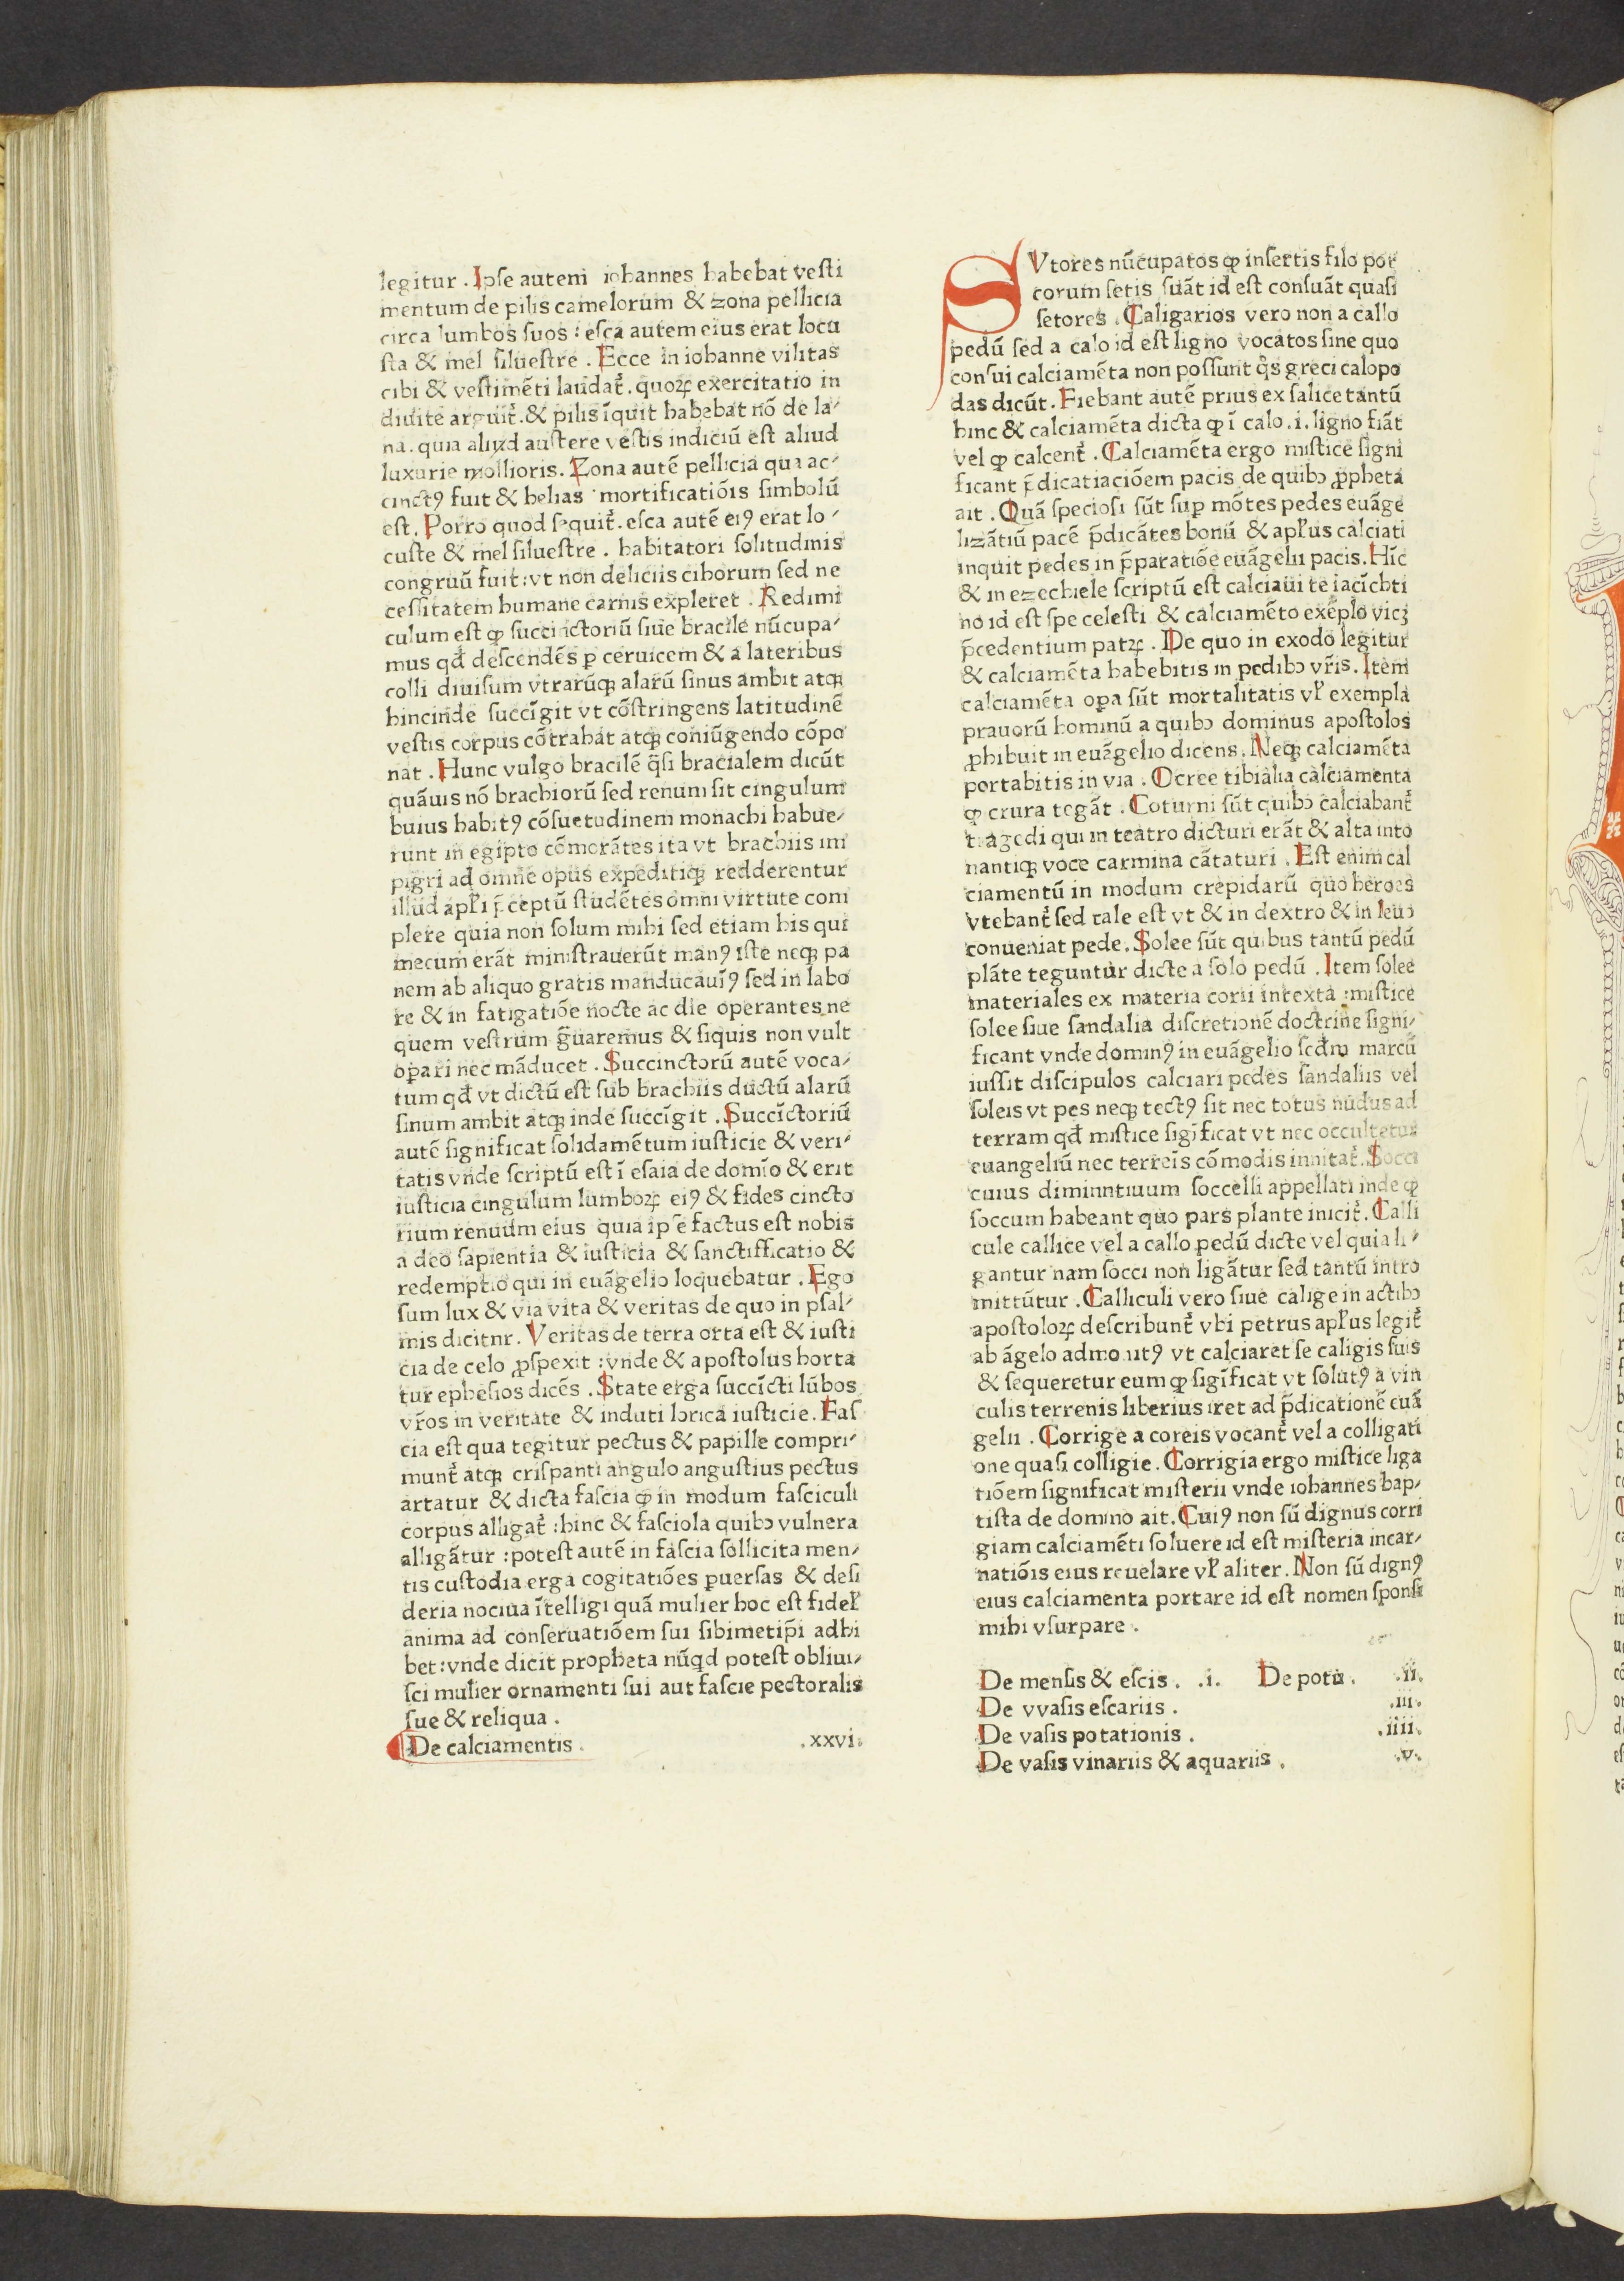 legitur . Ipſe auteni iohannes habebat veſti
mentum de pilis camelorum & zona pellicia
circa lumbos ſuos : eſca autem eius erat locu
ſta & mel ſilueſtre . Ecce in iohanne vilitas
cibi & veſtimēti laudat᷑. quoꝝ exercitatio in
diuite arguit᷑. & pilis īquit habebat nō de la⸗
na. quia aliud auſtere veſtis indiciū eſt aliud
luxurie mollioris. Zona autē pellicia qua ac⸗
cinctꝰ fuit & helias mortificatiōis ſimbolū
eſt. Porro quod ſequit᷑. eſca autē eiꝰ erat lo⸗
cuſte & mel ſilueſtre . habitatori ſolitudinis
congruū fuit : vt non deliciis ciborum ſed ne
ceſſitatem humane carnis expleret . Redimi
culum eſt ꝙ ſuccinctoriū ſiue bracile nūcupa⸗
mus qđ deſcendēs ꝑ ceruicem & a lateribus
colli diuiſum vtrarūqꝫ alarū ſinus ambit atqꝫ
hincinde ſuccīgit vt cōſtringens latitudinē
veſtis corpus cōtrahat atqꝫ coniūgendo cōpo
nat . Hunc vulgo bracilē q̄ſi bracialem dicūt
quāuis nō brachiorū ſed renum ſit cingulum
huius habitꝰ cōſuetudinem monachi habue⸗
runt in egipto cōmorātes ita vt brachiis im
pigri ad omne opus expeditiqꝫ redderentur
illud apl̓i p̄ceptū ſtudētes omni virtute com
plere quia non ſolum mihi ſed etiam his qui
mecum erāt miniſtrauerūt manꝰ iſte neqꝫ pa
nem ab aliquo gratis manducauīꝰ ſed in labo
re & in fatigatiōe nocte ac die operantes ne
quem veſtrum g̃uaremus & ſiquis non vult
oꝑari nec māducet . Succinctorū autē voca⸗
tum qđ vt dictū eſt ſub brachiis ductū alarū
ſinum ambit atqꝫ inde ſuccīgit . Succīctoriū
autē ſignificat ſolidamētum iuſticie & veri⸗
tatis vnde ſcriptū eſt ī eſaia de domīo & erit
iuſticia cingulum lumboꝝ eiꝰ & fides cincto
rium renuum eius quia ip̄e factus eſt nobis
a deo ſapientia & iuſticia & ſanctifficatio &
redemptio qui in euāgelio loquebatur . Ego
ſum lux & via vita & veritas de quo in pſal⸗
mis dicitnr. Veritas de terra orta eſt & iuſti
cia de celo ꝓſpexit : vnde & apoſtolus horta
tur epheſios dicēs . State erga ſuccīcti lūbos
vr̄os in veritate & induti lorica iuſticie. Faſ
cia eſt qua tegitur pectus & papille compri⸗
munt᷑ atqꝫ criſpanti angulo anguſtius pectus
artatur & dicta faſcia ꝙ in modum faſciculi
corpus alligat᷑ : hinc & faſciola quibꝰ vulnera
alligātur : poteſt autē in faſcia ſollicita men⸗
tis cuſtodia erga cogitatiōes ꝑuerſas & deſi
deria nociua ītelligi quā mulier hoc eſt fidel̓
anima ad conſeruatiōem ſui ſibimetip̄i adhi
bet : vnde dicit propheta nūqd poteſt obliui⸗
ſci mulier ornamenti ſui aut faſcie pectoralis
ſue & reliqua .
De calciamentis . .xxvi.
SVtores nūcupatos ꝙ inſertis filo por
corum ſetis ſuāt id eſt conſuāt quaſi
ſetores . Caligarios vero non a callo
pedū ſed a calo id eſt ligno vocatos ſine quo
conſui calciamēta non poſſunt q̊s greci calopo
das dicūt. Fiebant autē prius ex ſalice tantū
hinc & calciamēta dicta ꝙ ī calo .i. ligno fiāt
vel ꝙ calcent᷑ . Calciamēta ergo miſtice ſigni
ficant p̄dicatiaciōem pacis de quibꝰ ꝓpheta
ait . Quā ſpecioſi ſūt ſuꝑ mōtes pedes euāge
lizātiū pacē p̄dicātes bonū & apl̓us calciati
inquit pedes in p̄paratiōe euāgelii pacis. Hīc
& in ezechiele ſcriptū eſt calciaui te iacīchti
no id eſt ſpe celeſti & calciamēto exēplo vicꝫ
p̄cedentium patꝝ . De quo in exodo legitur
& calciamēta habebitis in pedibꝰ vr̄is. Item
calciamēta oꝑa ſūt mortalitatis vl̓ exempla
prauorū hominū a quibꝰ dominus apoſtolos
ꝓhibuit in euāgelio dicens. Neqꝫ calciamēta
portabitis in via . Ocree tibialia calciamenta
ꝙ crura tegāt . Coturni ſūt quibꝰ calciabant᷑
tragedi qui in teatro dicturi erāt & alta into
nantiqꝫ voce carmina cātaturi . Eſt enim cal
ciamentū in modum crepidarū quo heroes
vtebant᷑ ſed tale eſt vt & in dextro & in leuo
conueniat pede. Solee ſūt quibus tantū pedū
plāte teguntur dicte a ſolo pedū . Item ſolee
materiales ex materia corii intexta : miſtice
ſolee ſiue ſandalia diſcretionē doctrine ſigni⸗
ficant vnde dominꝰ in euāgelio ſcđm marcū
iuſſit diſcipulos calciari pedes ſandaliis vel
ſoleis vt pes neqꝫ tectꝰ ſit nec totus nudus ad
terram qđ miſtice ſigīficat vt nec occultetur
euangeliū nec terreīs cōmodis innitat᷑. Socci
cuius diminntiuum ſoccelli appellati inde ꝙ
ſoccum habeant quo pars plante inicit᷑. Calli
cule callice vel a callo pedū dicte vel quia li⸗
gantur nam ſocci non ligātur ſed tantū intro
mittūtur . Calliculi vero ſiue calige in actibꝰ
apoſtoloꝝ deſcribunt᷑ vbi petrus apl̓us legit᷑
ab āgelo admonitꝰ vt calciaret ſe caligis ſuis
& ſequeretur eum ꝙ ſigīficat vt ſolutꝰ a vin
culis terrenis liberius iret ad p̄dicationē euā
gelii . Corrige a coreis vocant᷑ vel a colligati
one quaſi colligie. Corrigia ergo miſtice liga
tiōem ſignificat miſterii vnde iohannes bap⸗
tiſta de domino ait. Cuiꝰ non ſū dignus corri
giam calciamēti ſoluere id eſt miſteria incar⸗
natiōis eius reuelare vl̓ aliter. Non ſū dignꝰ
eius calciamenta portare id eſt nomen ſponſi
mihi vſurpare .
De menſis & eſcis . .i. De potu . .ii.
De vvaſis eſcariis . .iii.
De vaſis potationis . .iiii.
De vaſis vinariis & aquariis . .v.